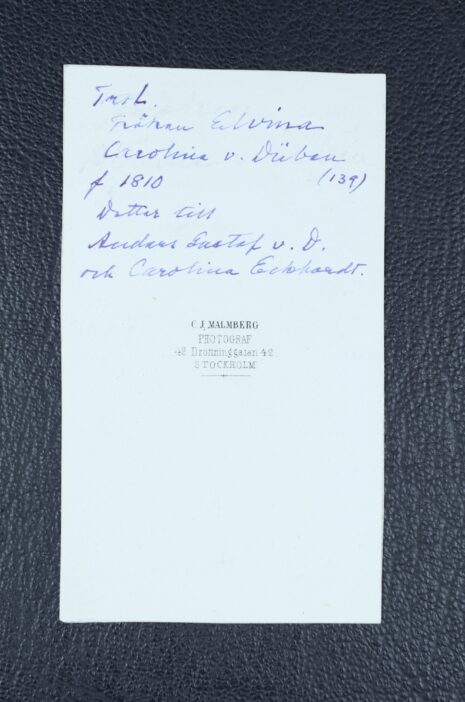 Frsk.
Fröken Elvina
Carolina v. Düben
f 1810 (139)
Dotter till
Anders Gustaf v. D.
och Carolina Eckhardt.
C. J. MALMBERG
PHOTOGRAF
42 Drottninggatan 42
STOCKHOLM